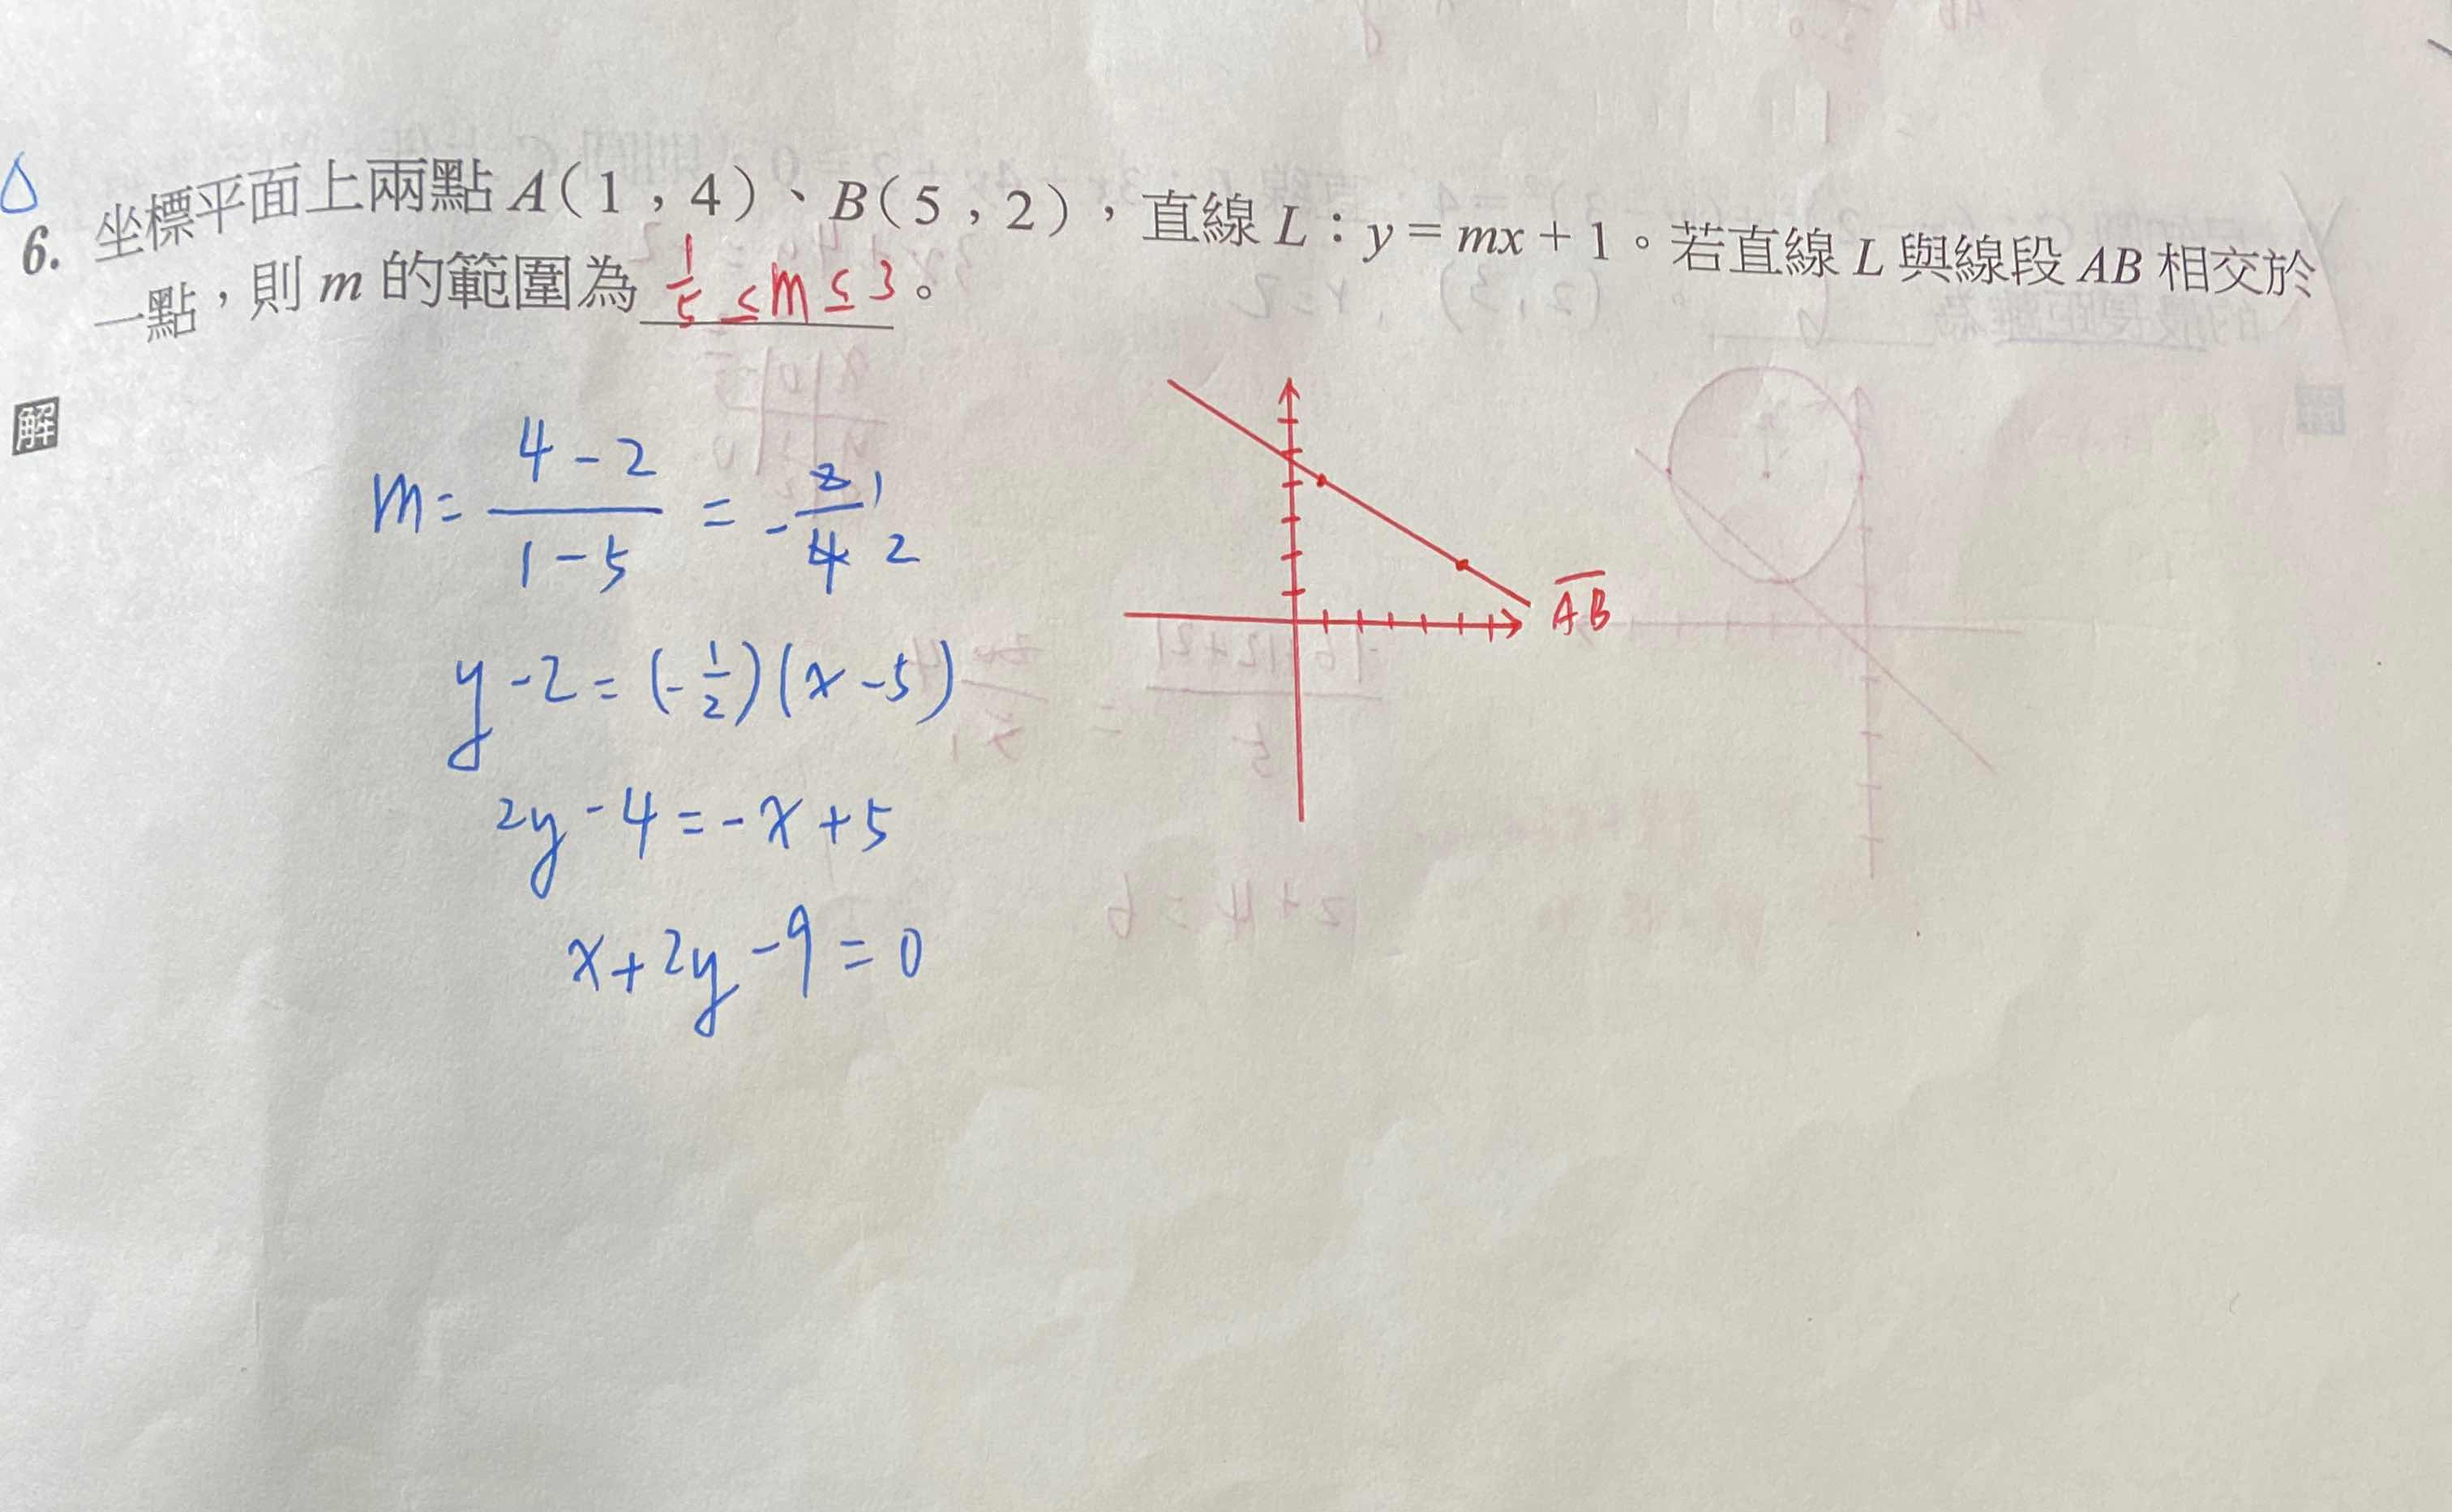 6. 坐標平面上兩點 A(1,4)、B(5,2),直線 L:y=mx+1。若直線 L 與線段 AB 相交於
一點,則 m 的範圍為 1/5 ≤ m ≤ 3。
解
m = (4-2)/(1-5) = -2/4 1 2
y-2 = (-1/2)(x-5)
2y-4 = -x+5
x+2y-9 = 0
A̅B̅